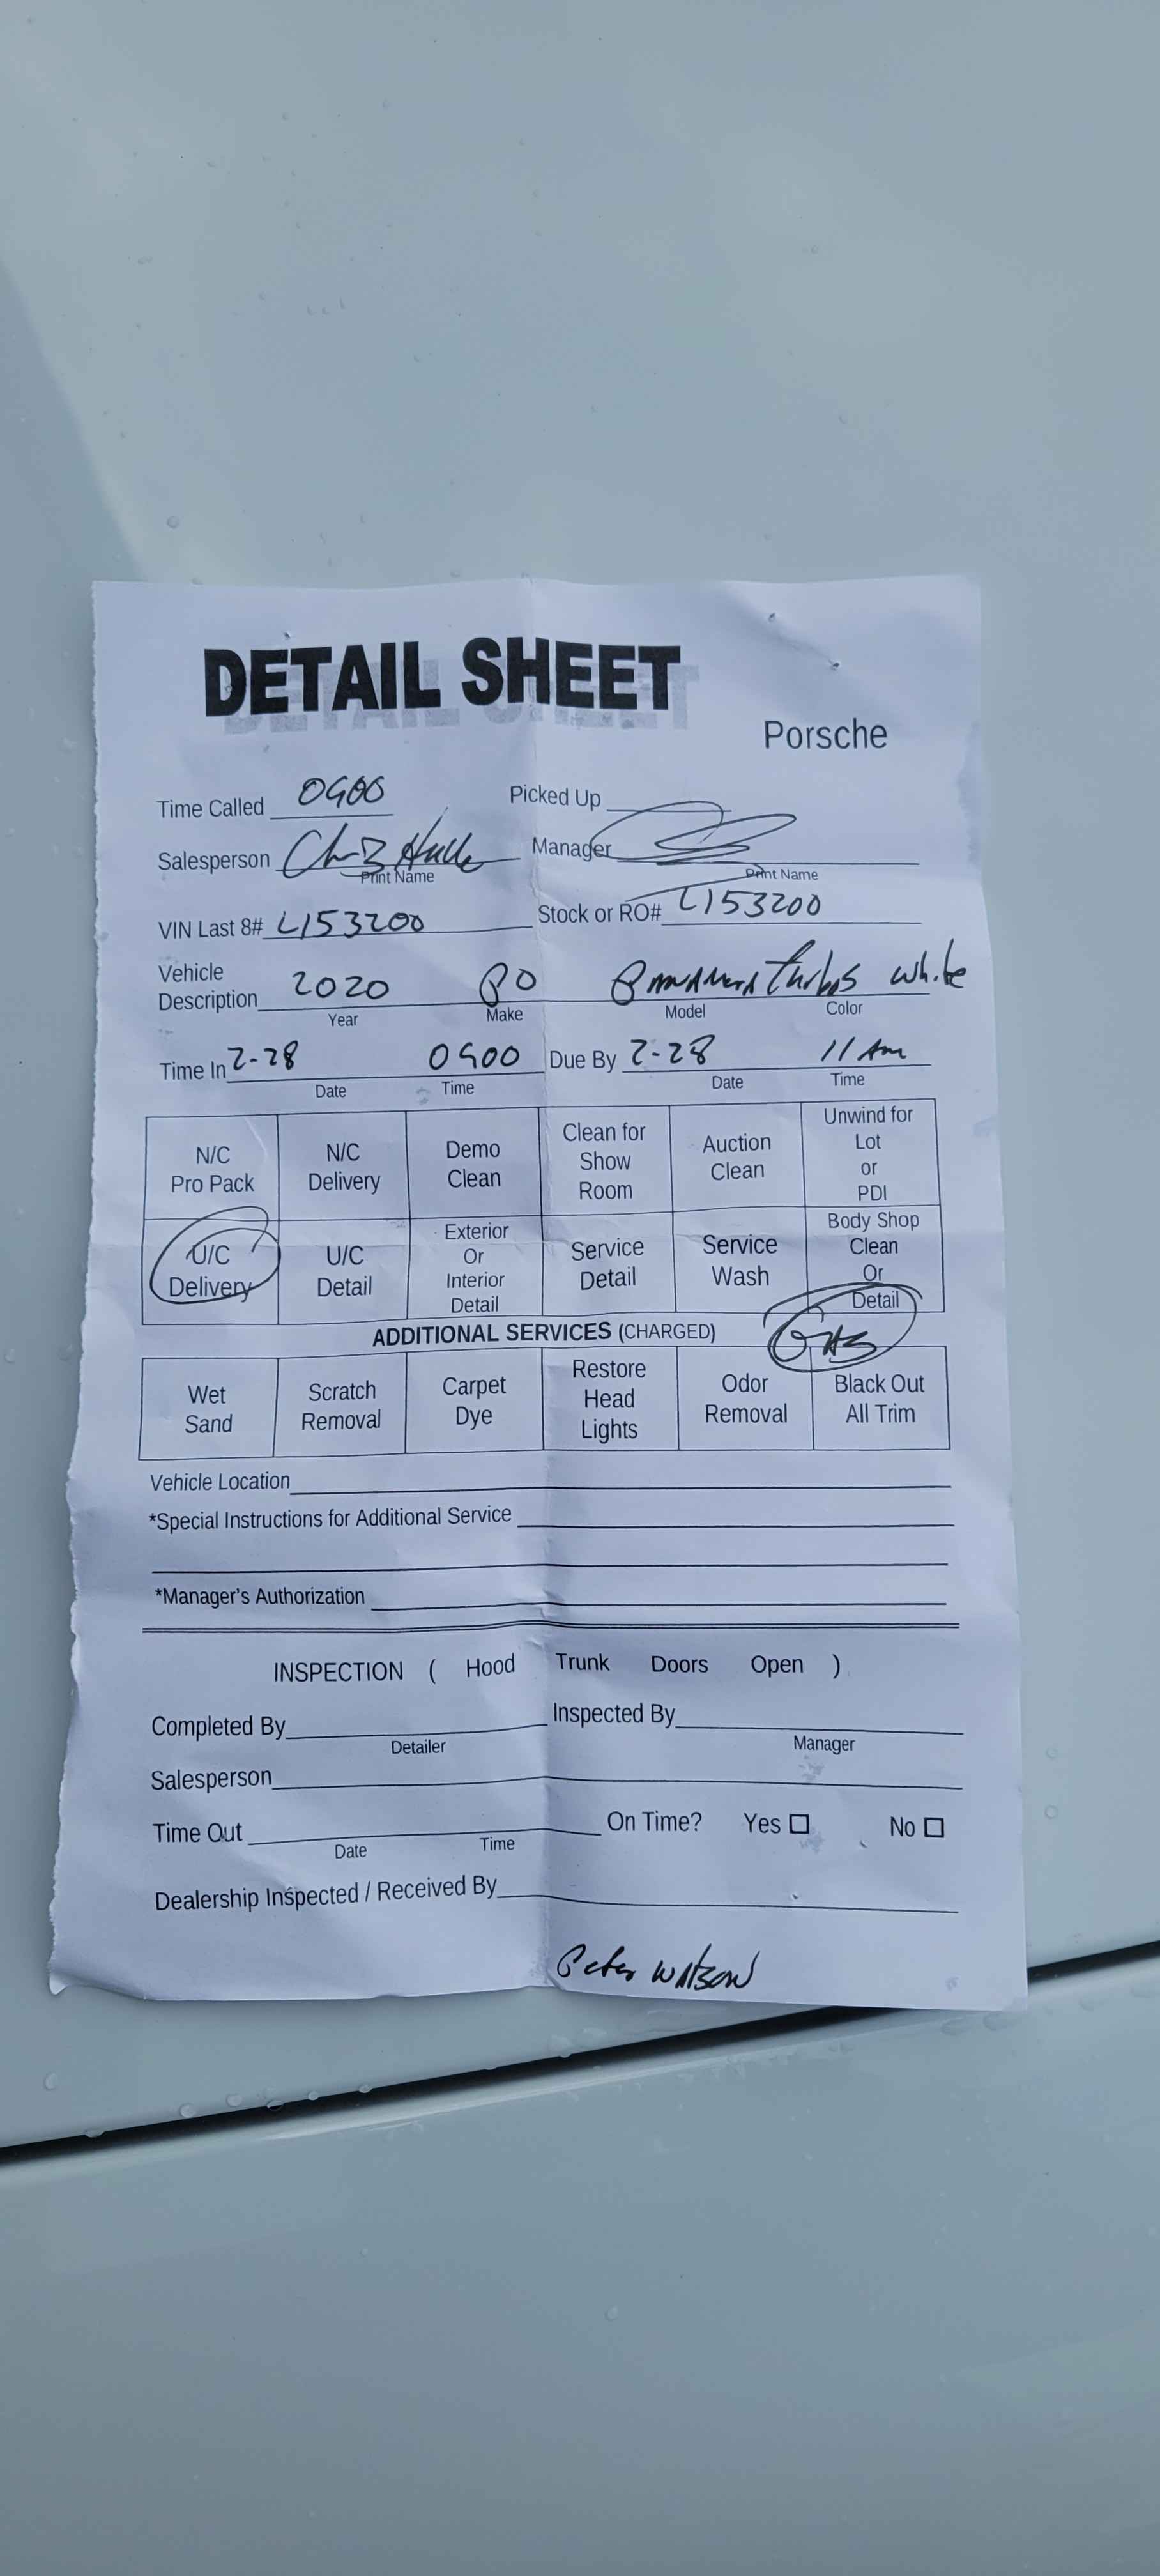 DETAIL SHEET
Porsche
Time Called 0900 Picked Up
Salesperson Manager
Print Name Print Name
VIN Last 8# L153200 Stock or RO# L153200
Vehicle Description 2020 PO turbos white
Year Make Model Color
Time In 2-28 0900 Due By 2-28 11 Am
Date Time Date Time
N/C Pro Pack N/C Delivery Demo Clean Clean for Show Room Auction Clean Unwind for Lot or PDI
U/C Delivery U/C Detail Exterior Or Interior Detail Service Detail Service Wash Body Shop Clean Or Detail
ADDITIONAL SERVICES (CHARGED) GAS
Wet Sand Scratch Removal Carpet Dye Restore Head Lights Odor Removal Black Out All Trim
Vehicle Location
*Special Instructions for Additional Service
*Manager's Authorization
INSPECTION ( Hood Trunk Doors Open )
Completed By Inspected By
Detailer Manager
Salesperson
Time Out On Time? Yes No
Date Time
Dealership Inspected / Received By
Peter Watson